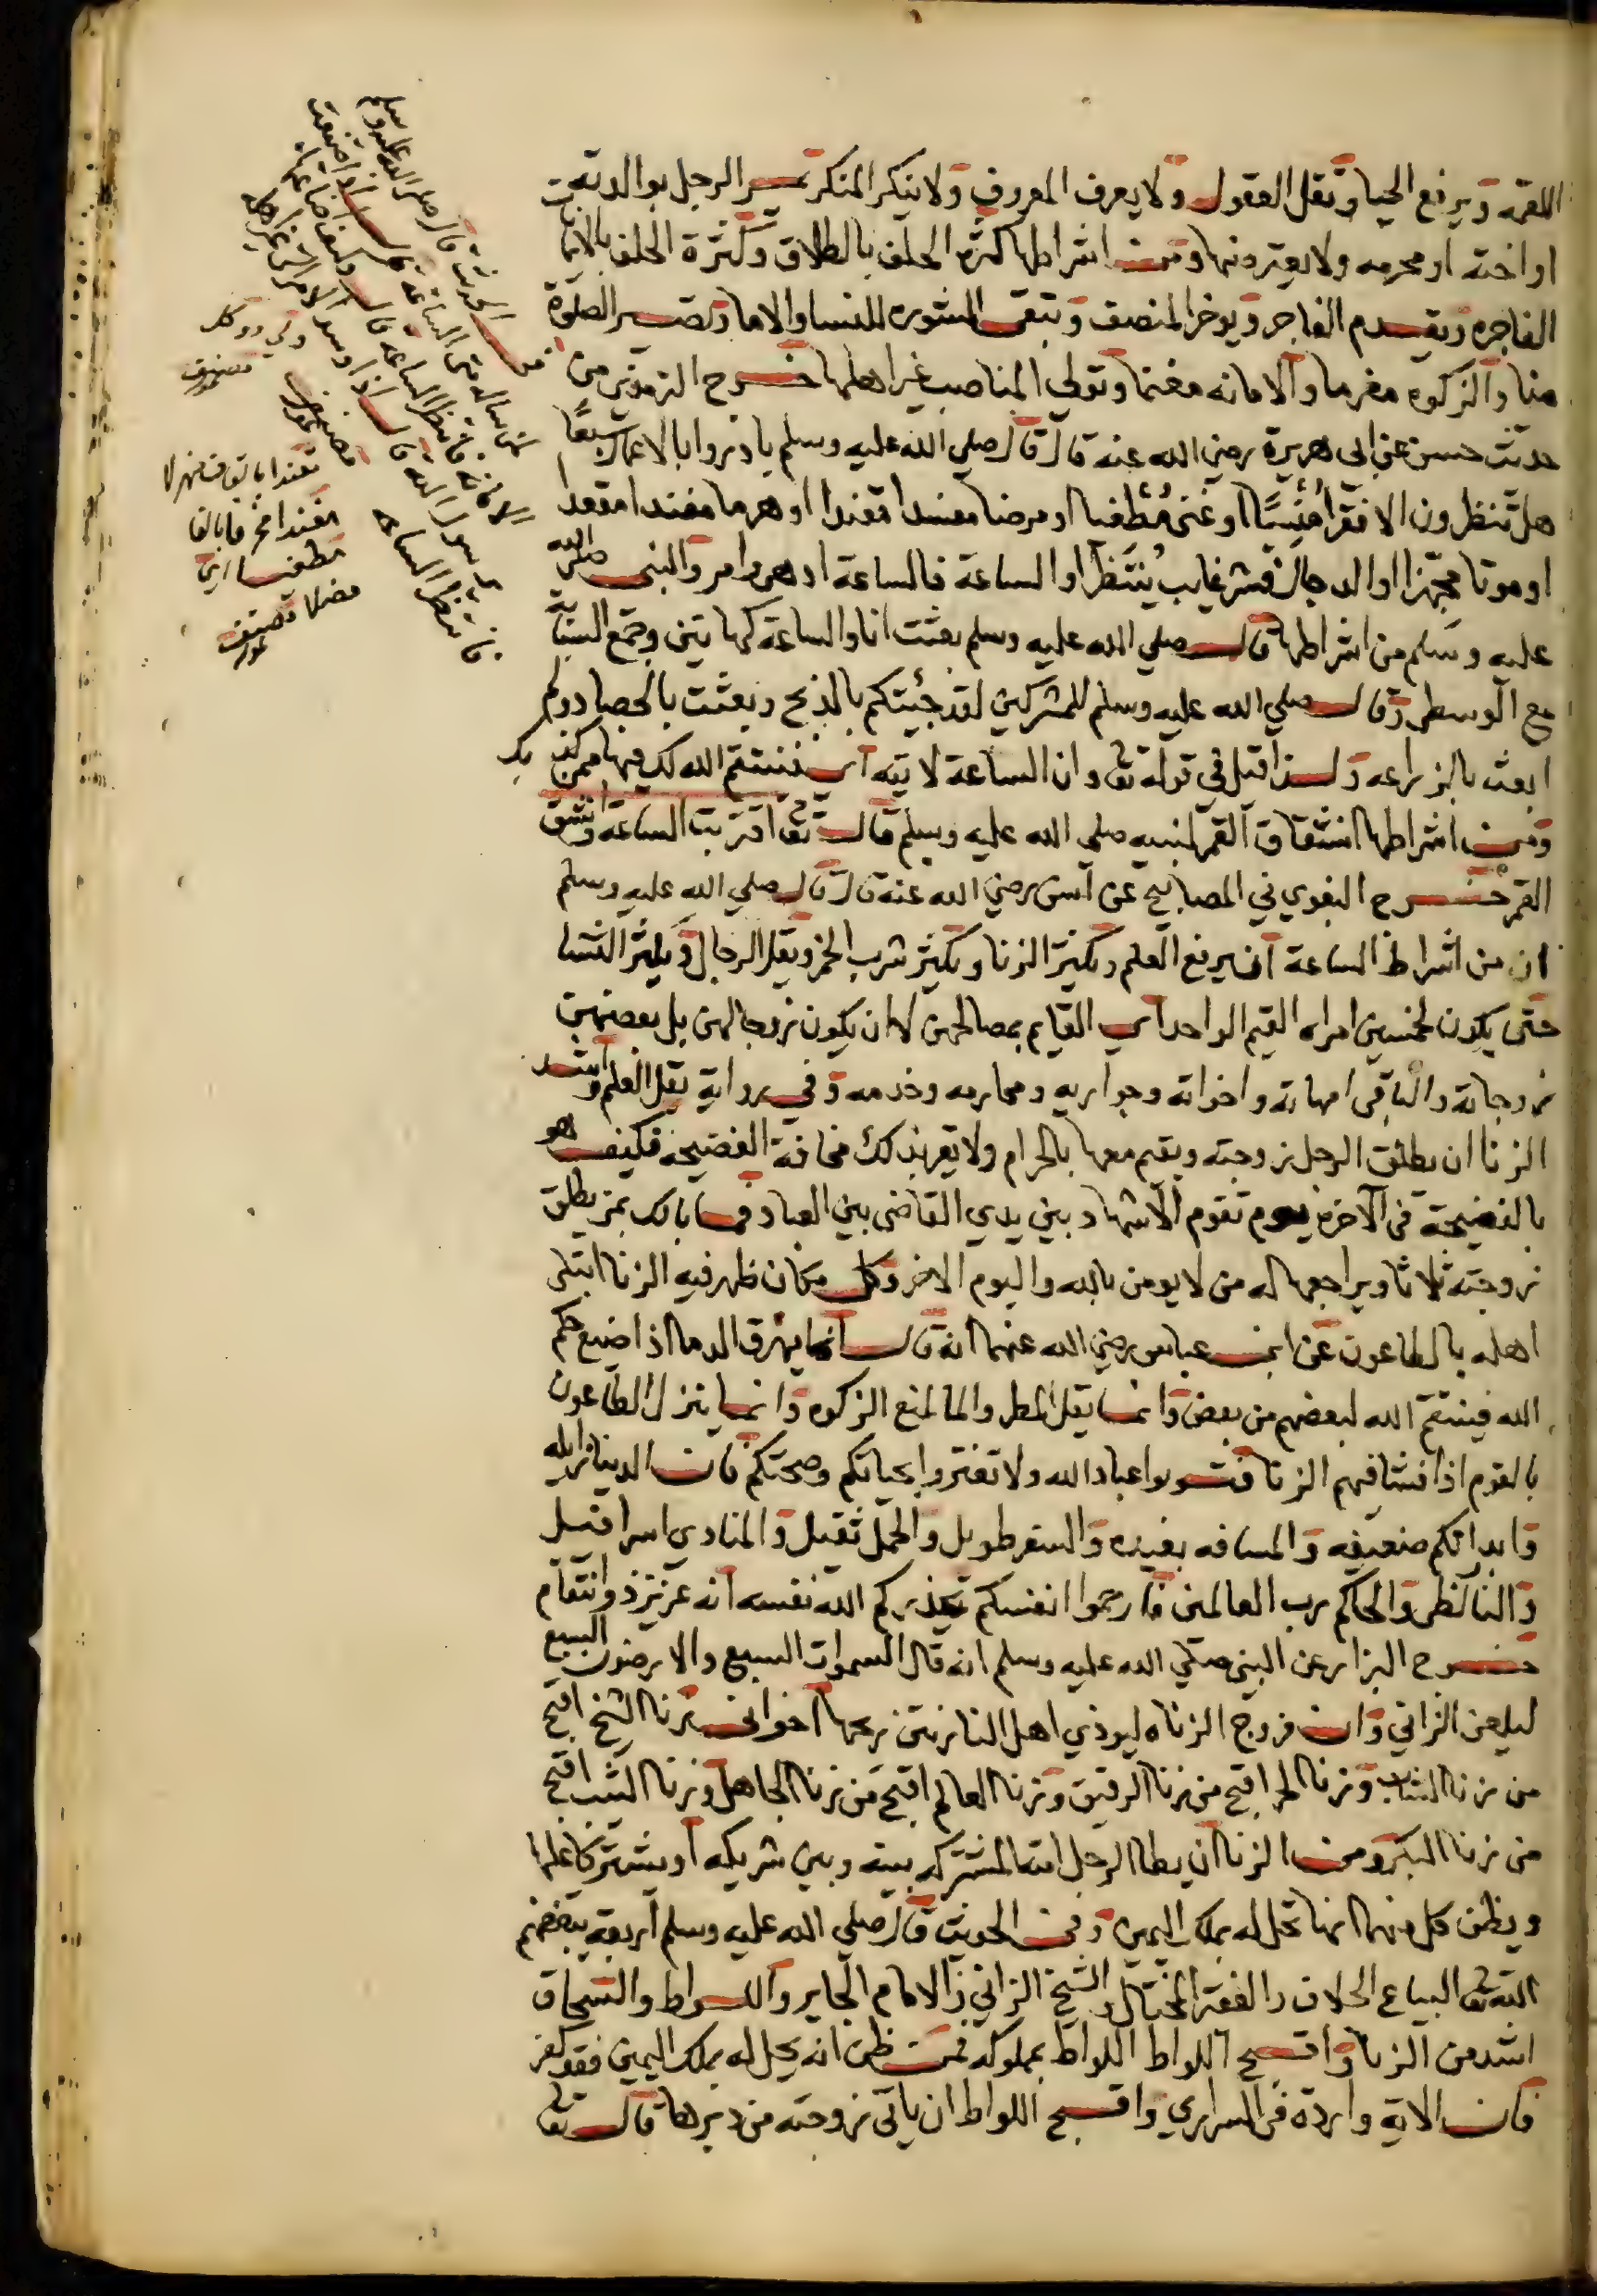 اللقمة ويرفع الحيا وتقل العقول ولا يعرف المعروف ولا ينكر المنكر الرجل بوالديه
او اخته او محرمه ولا يعيره ومن اشراطها كثرة الحلف بالطلاق وكثرة الحلف بالايما
الفاجره ويقدم الفاجر ويوخر المنصف وتبقى المشوره للنسا والاما وتصير الصلوة
منا والزكوه مغرما والامانه مغنما وتولي المناصب غير اهلها خرج الترمذي من
حديث حسن عن ابى هريرة رضي الله عنه قال قال صلي الله عليه وسلم بادروا بالاعمال سبعًا
هل تنظرون الا فقرًا منسيًا او غنى مُطغيا او مرضا مفسدا او هرما مفندا
او موتا مجهزا او الدجال فشر غايب يُنتظر او الساعة فالساعة ادهى وامر والنبي صلى الله
عليه وسلم من اشراطها قال صلي الله عليه وسلم بعثت انا والساعة كهاتين وجمع السبابة
مع الوسطى وقال صلي الله عليه وسلم للمشركين لقد جئيتكم بالذبح وبعثت بالحصاد ولم
ابعث بالزراعه ولهذا قيل في قوله تع وان الساعة لاتيه اي فينتقم الله لك فيها ممن كفر بك
ومن اشراطها انشقاق القمر لنبيه صلي الله عليه وسلم قال تع اقتربت الساعة وانشق
القمر خرج البغوي في المصابيح عن انس رضي الله عنه قال قال صلي الله عليه وسلم
ان من اشراط الساعة ان يرفع العلم ويكثر الزنا ويكثر شرب الخمر ويقل الرجال ويكثر النسا
حتى يكون لخمسين امراه القيم الواحد اي القايم بمصالحهن لا ان يكون زوجا لهن بل بعضهن
زوجاته والباقي امهاته واخواته وجواريه ومحارمه وخدمه وفي رواية يقل العلم واشد
الزنا ان يطلق الرجل زوجته ويقيم معها بالحرام ولا يقر بذلك مخافة الفضيحة فكيف هو
بالفضيحة في الاخرة يوم تقوم الاشهاد بين يدي القاضي بين العباد فما بالك بمن يطلق
زوجته ثلاثا ويراجعها له من لا يومن بالله واليوم الاخر وكل مكان ظهر فيه الزنا ابتلى
اهله بالطاعون عن ابن عباس رضي الله عنهما انه قال انما يهرق الدما اذا ضيع حكم
الله فينتقم الله لبعضهم من بعض وانما يقل المطر والما لمنع الزكوه وانما ينزل الطاعون
بالقوم اذا فشا فيهم الزنا فتوبوا عباد الله ولا تغتروا بحياتكم وصحتكم فان الدينا زايله
وابدانكم ضعيفه والمسافه بعيده والسفر طويل والحمل ثقيل والمنادى اسرافيل
والنا والحاكم رب العالمين فارحموا انفسكم يحذركم الله نفسه انه عزيز ذو انتقام
خرج البزار عن النبي صلي الله عليه وسلم انه قال السموات السبع والارضون السبع
ليلعن الزاني وان فروج الزناه ليوذي اهل النار نتن ريحها اخوانى زنا الشيخ اقبح
من زنا الشاب وزنا الحر اقبح من زنا الرقيق وزنا العالم اقبح من زنا الجاهل وزنا الثيب اقبح
من زنا البكر ومن الزنا ان يطا الرجل امته المشتركه بينه وبين شريكه او يشتركا عليها
ويظن كل منهما انها تحل له بملك اليمين وفي الحديث قال صلي الله عليه وسلم اربعة يبغضهم
الله تع البياع الحلاف والفقير المختال والشيخ الزاني والامام الجاير واللواط والسحاق
اشد من الزنا واقبح اللواط اللواط بمملوكه فمن ظن انه يحل له بملك اليمين فقد كفر
فان الاية وارده في السراري واقبح اللواط ان ياتى زوجته من دبرها قال تع
الحديث قال صلي الله عليه وسلم
لمن ساله متى الساعة قال اذا ضيعت
الامانة فانتظر الساعة قال وكيف اضاعتها
يا رسول الله قال اذا وسد الامر الى غير اهله
فانتظر الساعة